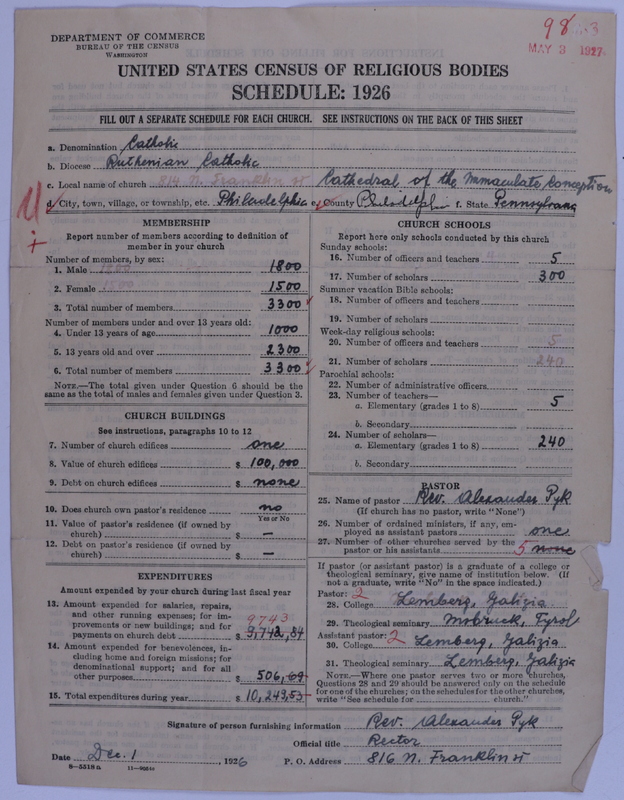 98
MAY 3 1927
DEPARTMENT OF COMMERCE
BUREAU OF THE CENSUS
WASHINGTON
UNITED STATES CENSUS OF RELIGIOUS BODIES
SCHEDULE: 1926
FILL OUT A SEPARATE SCHEDULE FOR EACH CHURCH. SEE INSTRUCTIONS ON THE BACK OF THIS SHEET
a. Denomination Catholic
b. Diocese Ruthenian Catholic
c. Local name of church 814 N. Franklin st Cathedral of the Immaculate Conception
d. City, town, village, or township, etc. Philadelphia e. County Philadelphia f. State Pennsylvania
MEMBERSHIP
Report number of members according to definition of
member in your church
Number of members, by sex:
1. Male 1800 1800
2. Female 1500 1500
3. Total number of members 3300
Number of members under and over 13 years old:
4. Under 13 years of age 1000
5. 13 years old and over 2300
6. Total number of members 3300
NOTE.—The total given under Question 6 should be the
same as the total of males and females given under Question 3.
CHURCH BUILDINGS
See instructions, paragraphs 10 to 12
7. Number of church edifices one
8. Value of church edifices $ 100,000
9. Debt on church edifices $ none
10. Does church own pastor's residence no
Yes or No
11. Value of pastor's residence (if owned by
church) $ —
12. Debt on pastor's residence (if owned by
church) $ —
EXPENDITURES
Amount expended by your church during last fiscal year
13. Amount expended for salaries, repairs,
and other running expenses; for im-
provements or new buildings; and for 9743
payments on church debt $ 9,742,84
14. Amount expended for benevolences, in-
cluding home and foreign missions; for
denominational support; and for all
other purposes $ 506,69
15. Total expenditures during year $ 10,249,53
CHURCH SCHOOLS
Report here only schools conducted by this church
Sunday schools:
16. Number of officers and teachers 5
17. Number of scholars 300
Summer vacation Bible schools:
18. Number of officers and teachers
19. Number of scholars
Week-day religious schools:
20. Number of officers and teachers 5
21. Number of scholars 240
Parochial schools:
22. Number of administrative officers
23. Number of teachers—
a. Elementary (grades 1 to 8) 5
b. Secondary
24. Number of scholars—
a. Elementary (grades 1 to 8) 240
b. Secondary
PASTOR
25. Name of pastor Rev. Alexander Pyk
(If church has no pastor, write "None")
26. Number of ordained ministers, if any, em-
ployed as assistant pastors one
27. Number of other churches served by the
pastor or his assistants 5 none
If pastor (or assistant pastor) is a graduate of a college or
theological seminary, give name of institution below. (If
not a graduate, write "No" in the space indicated.)
Pastor: 2
28. College Lemberg, Galizia
29. Theological seminary Tyrol
Assistant pastor: 2
30. College Lemberg, Galizia
31. Theological seminary Lemberg, Galizia
NOTE.—Where one pastor serves two or more churches,
Questions 28 and 29 should be answered only on the schedule
for one of the churches; on the schedules for the other churches,
write "See schedule for church."
Signature of person furnishing information Rev. Alexander Pyk
Official title Rector
Date Dec. 1, 1926 P. O. Address 816 N. Franklin st
8—5518a